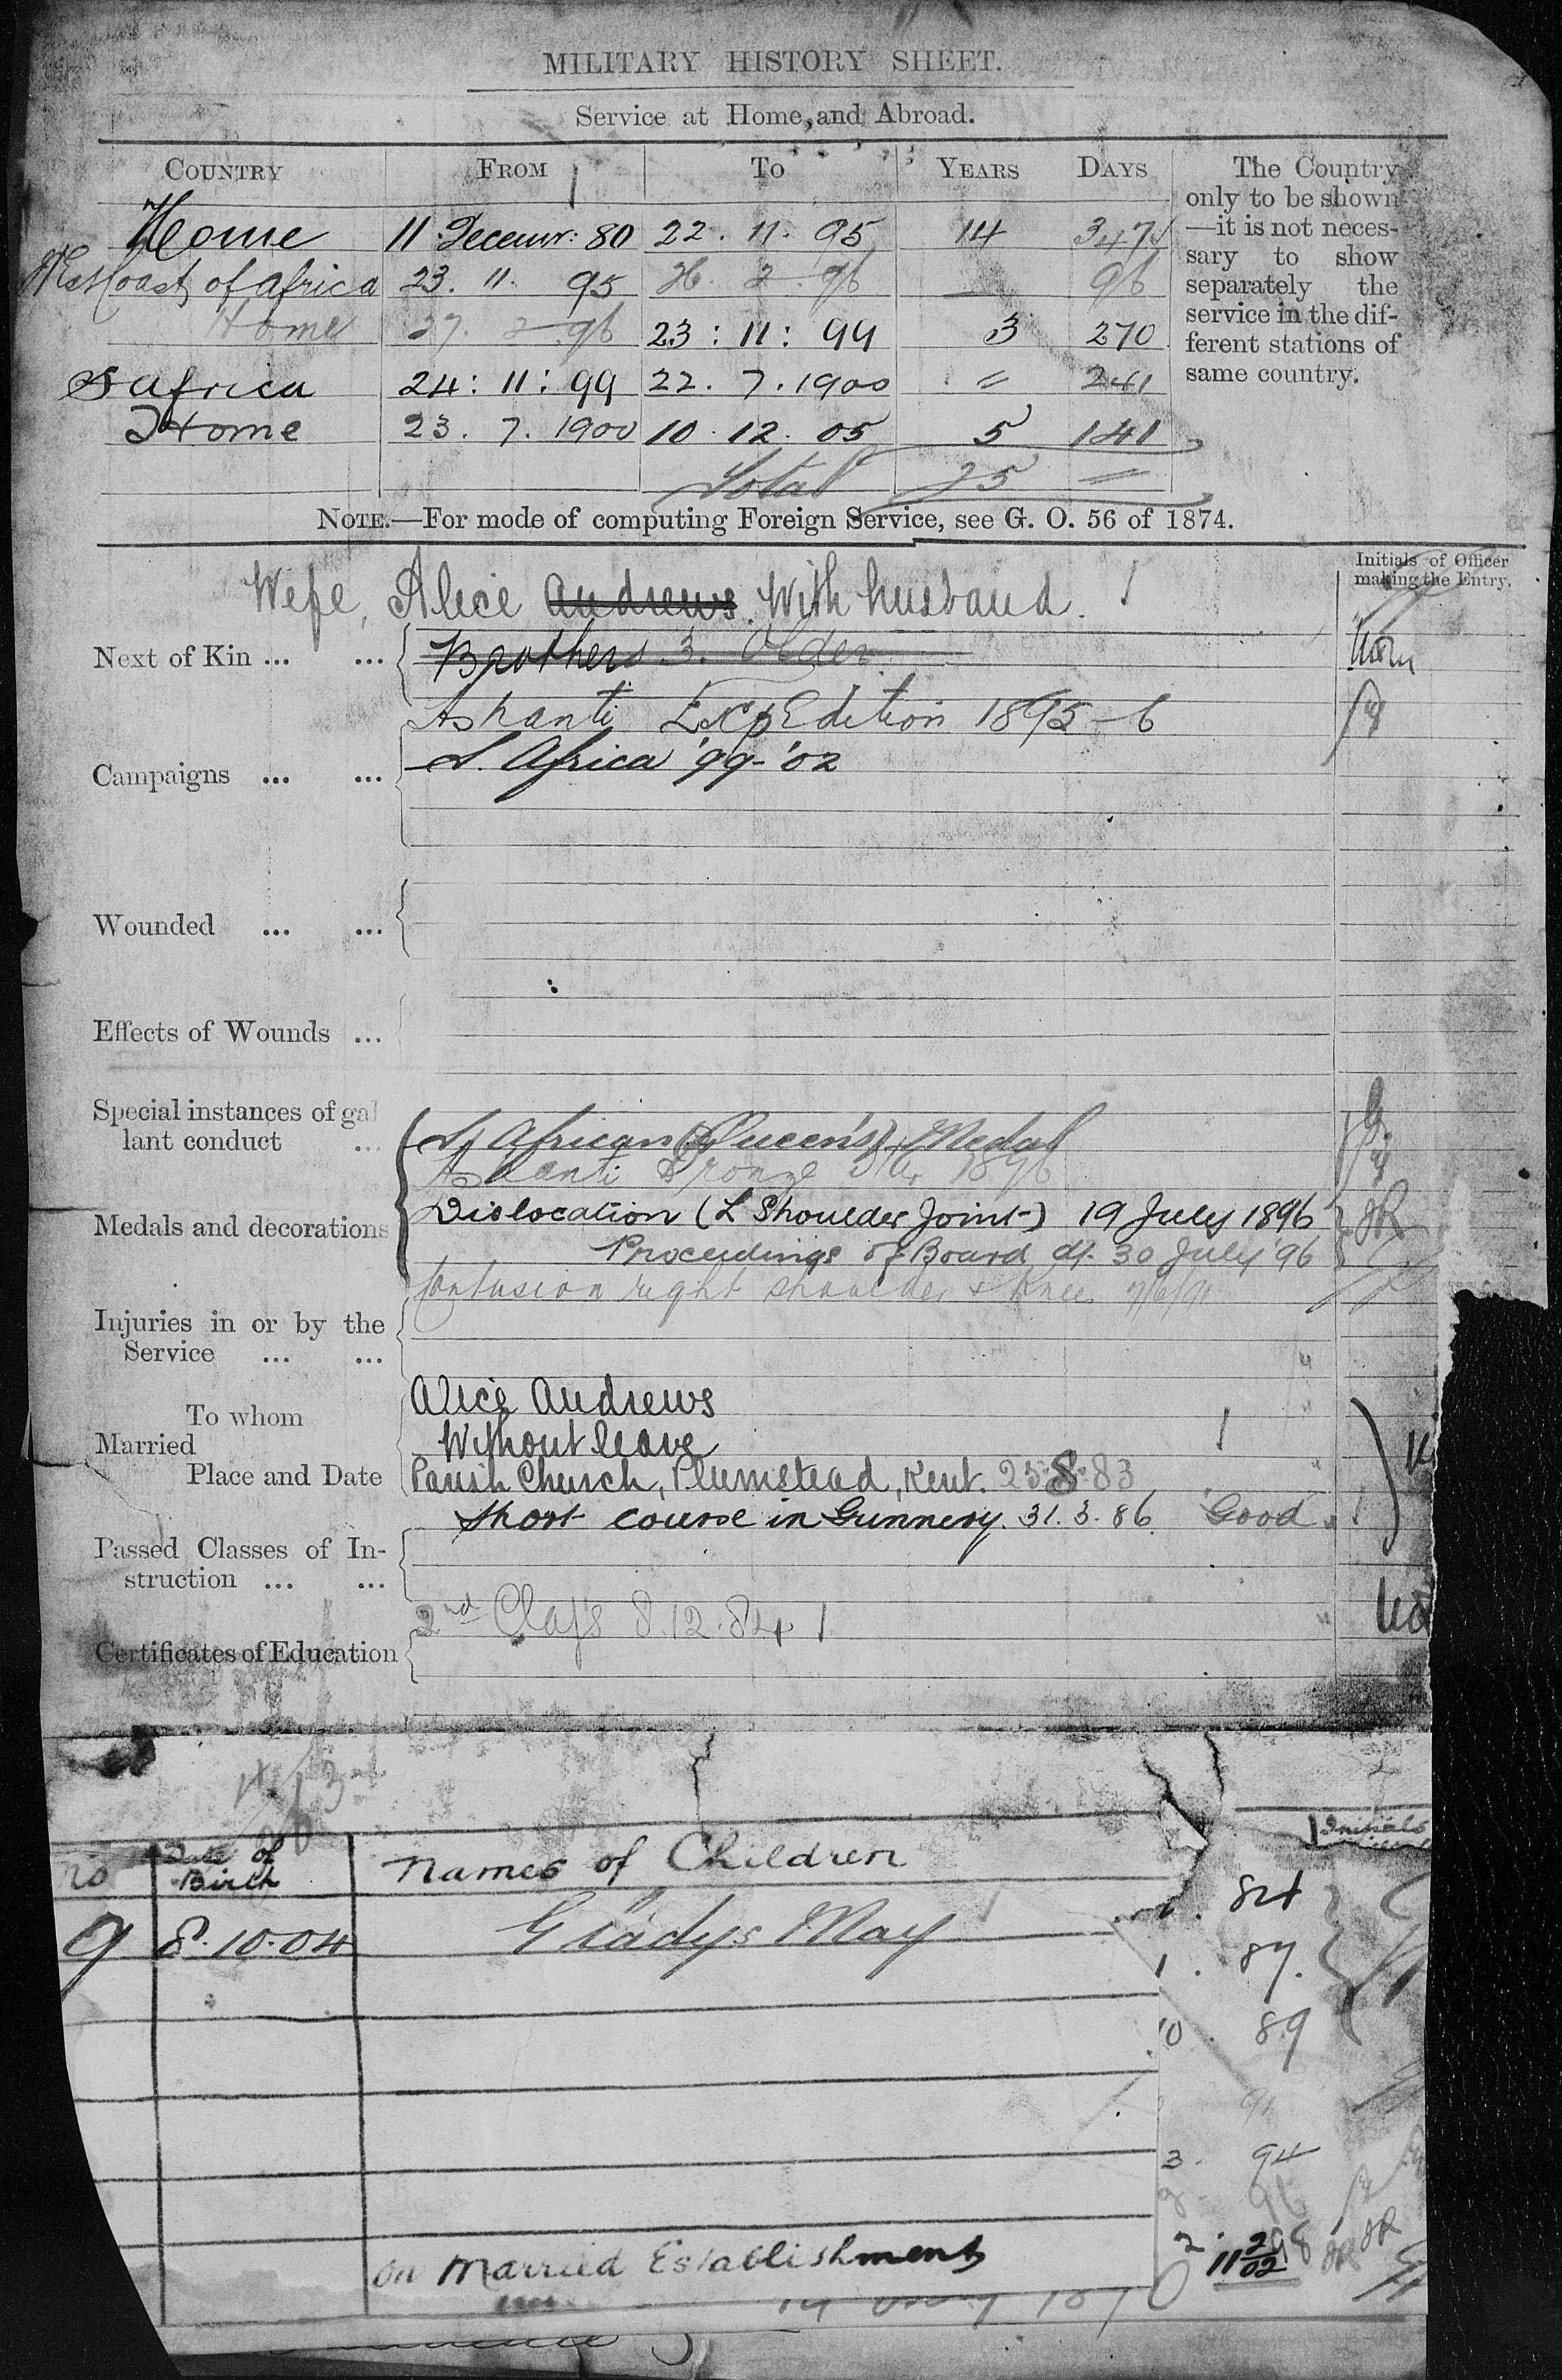 MILITARY HISTORY SHEET.
Service at Home, and Abroad.
COUNTRY FROM TO YEARS DAYS
Home 11 Decemr: 80 22. 11. 95 14 347
West Coast of Africa 23. 11. 95 26. 2. 96 — 96
Home 27. 2 96 23 : 11 : 99 3 270
S Africa 24 : 11 : 99 22. 7. 1900 " 241
Home 23. 7. 1900 10. 12. 05 5 141
Total 25 =
The Country
only to be shown
—it is not neces-
sary to show
separately the
service in the dif-
ferent stations of
same country.
NOTE.—For mode of computing Foreign Service, see G. O. 56 of 1874.
Initials of Officer
making the Entry.
Wife, Alice Andrews. With husband.
Next of Kin ... ... Brothers 3. Older
Ashanti Expedition 1895-6
Campaigns ... ... S. Africa '99-'02
Wounded ... ...
Effects of Wounds ...
Special instances of gal
lant conduct ...
S. African (Queen's) Medal
Ashanti Bronze Star 1896
Medals and decorations
Dislocation (L Shoulder Joint) 19 July 1896
Proceedings of Board dt. 30 July '96
Contusion right shoulder & Knee
Injuries in or by the
Service ... ...
Alice Andrews
To whom
Without leave
Married
Place and Date Parish Church, Plumstead, Kent. 25.8.83
Short course in Gunnery. 31. 3. 86 Good
Passed Classes of In-
struction ... ...
2nd Class 8.12.84
Certificates of Education
no Date of Birth Names of Children
Initials
9 8.10.04 Gladys May
84
87.
10. 89
91
3. 94
96
2. 98
11 2 02
On Married Establishment